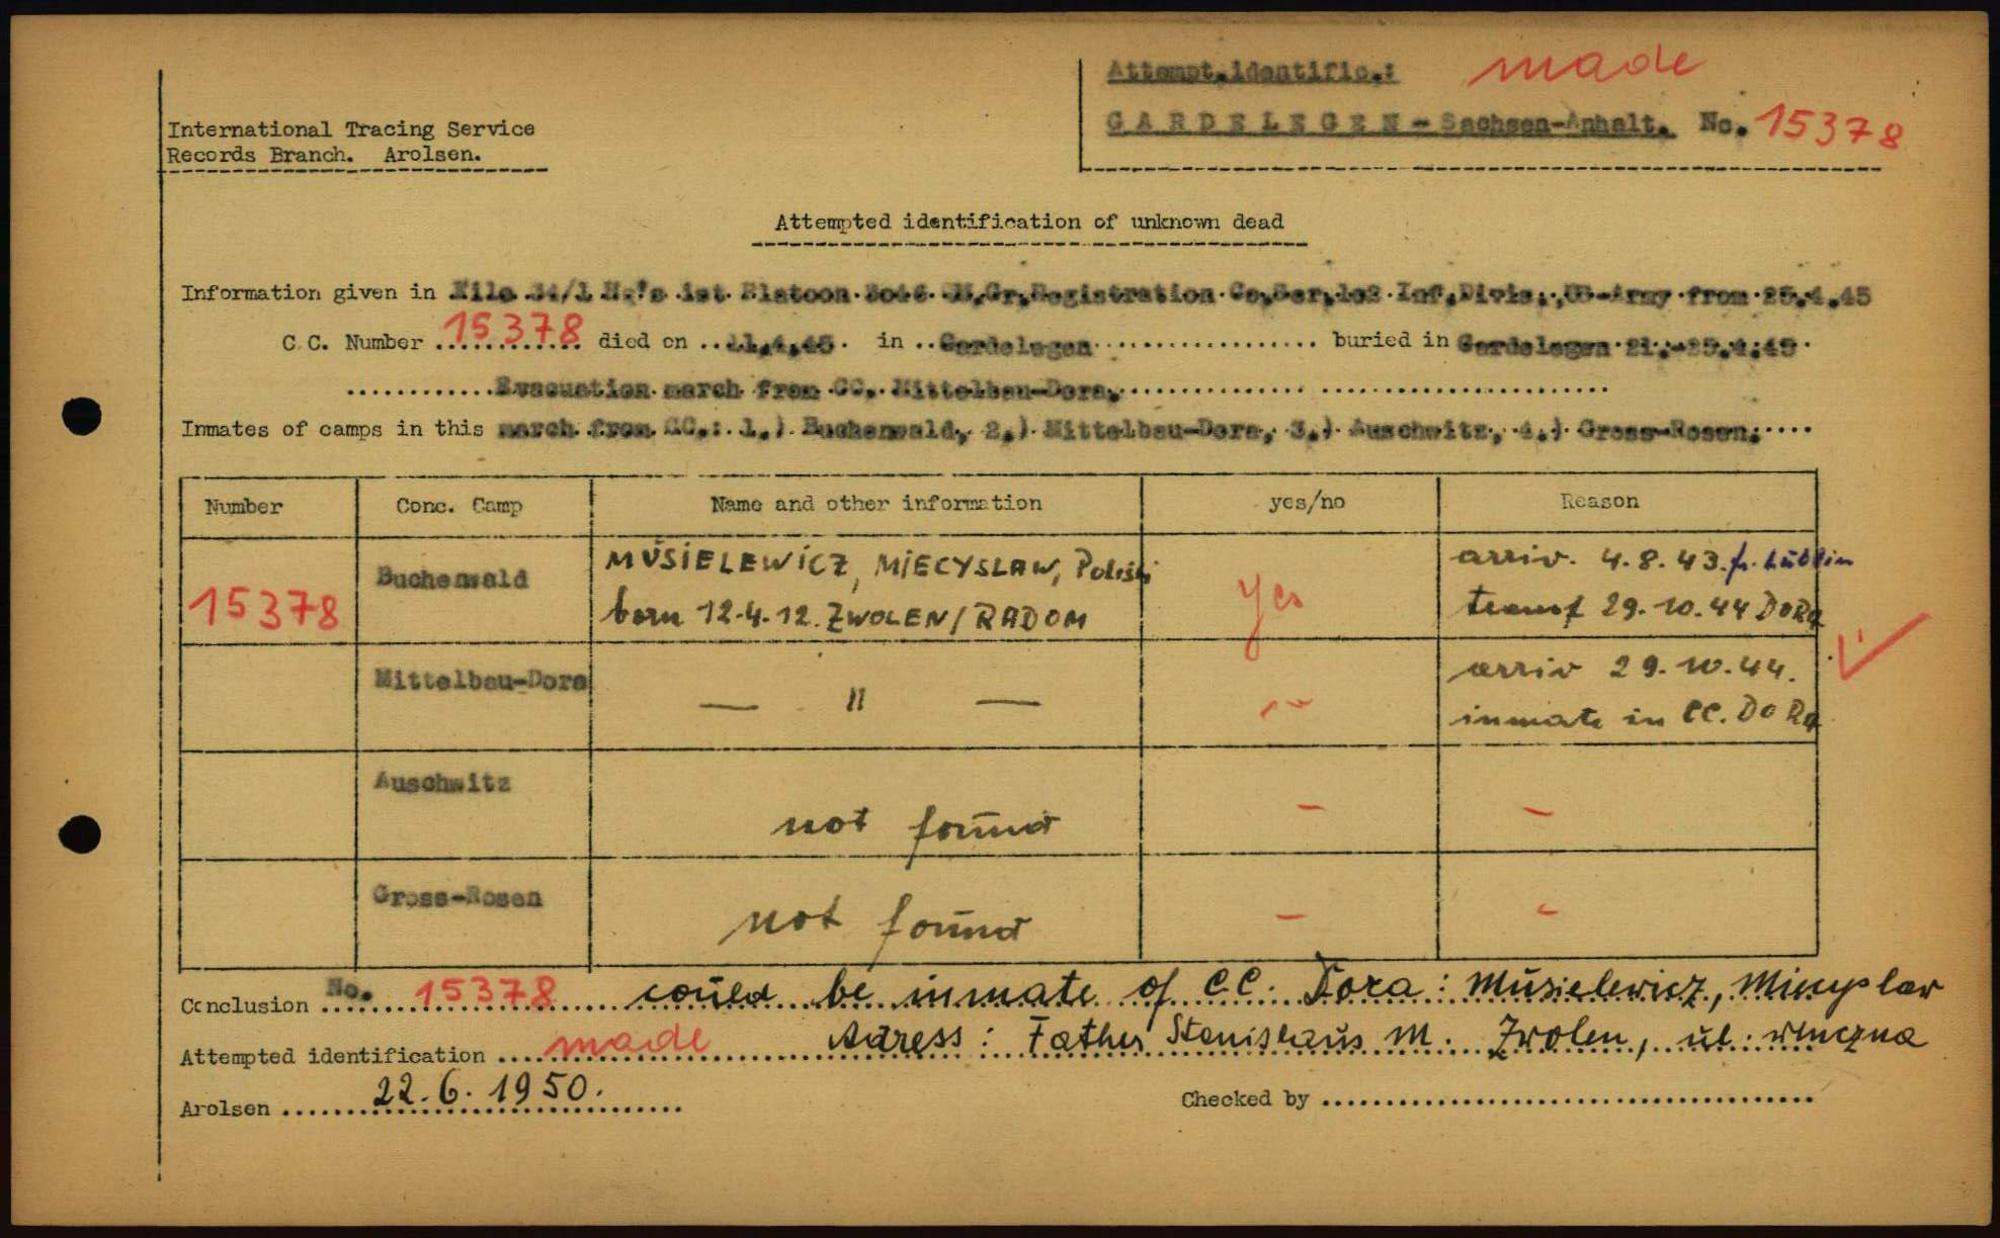 Attempt.identific.: made
GARDELEGEN - Sachsen-Anhalt. No. 15378
International Tracing Service
Records Branch. Arolsen.
Attempted identification of unknown dead
Information given in File 34/1 Hq's 1st Platoon 3046 Gr,Registration Co,Ser,102 Inf,Divis., US-Army from 25.4.45
C.C. Number 15378 died on 11.4.45 in Gardelegen buried in Gardelegen 21.-25.4.45
Evacuation march from CC. Mittelbau-Dora.
Inmates of camps in this march from CC.: 1.) Buchenwald, 2.) Mittelbau-Dora, 3.) Auschwitz, 4.) Gross-Rosen.
Number Conc. Camp Name and other information yes/no Reason
15378 Buchenwald MUSIELEWICZ, MIECYSLAW, Polish yes arriv. 4.8.43. fr. Lublin
born 12.4.12. ZWOLEN/RADOM transf 29.10.44 DORA
Mittelbau-Dora — " — arriv 29.10.44.
inmate in CC. DORA
Auschwitz not found - -
Gross-Rosen not found - -
Conclusion No. 15378 could be inmate of CC. Dora: Musielewicz, Miecyslaw
Attempted identification made Adress: Father Stanislaus M. Zwolen, ul.
Arolsen 22.6.1950. Checked by